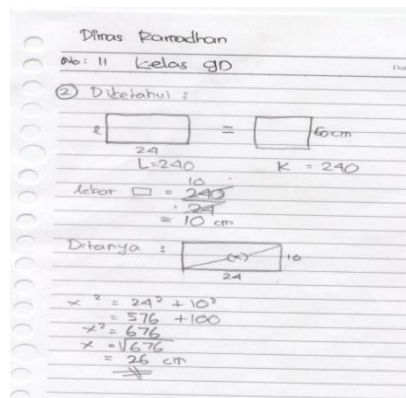 Dimas Ramadhan
No: 11 Kelas 9D
② Diketahui :
l = 60 cm
24
L=240 K = 240
10
lebar = 240
24
= 10 cm
Ditanya :
(x) 10
24
x² = 24² + 10²
= 576 + 100
x² = 676
x = √676
= 26 cm